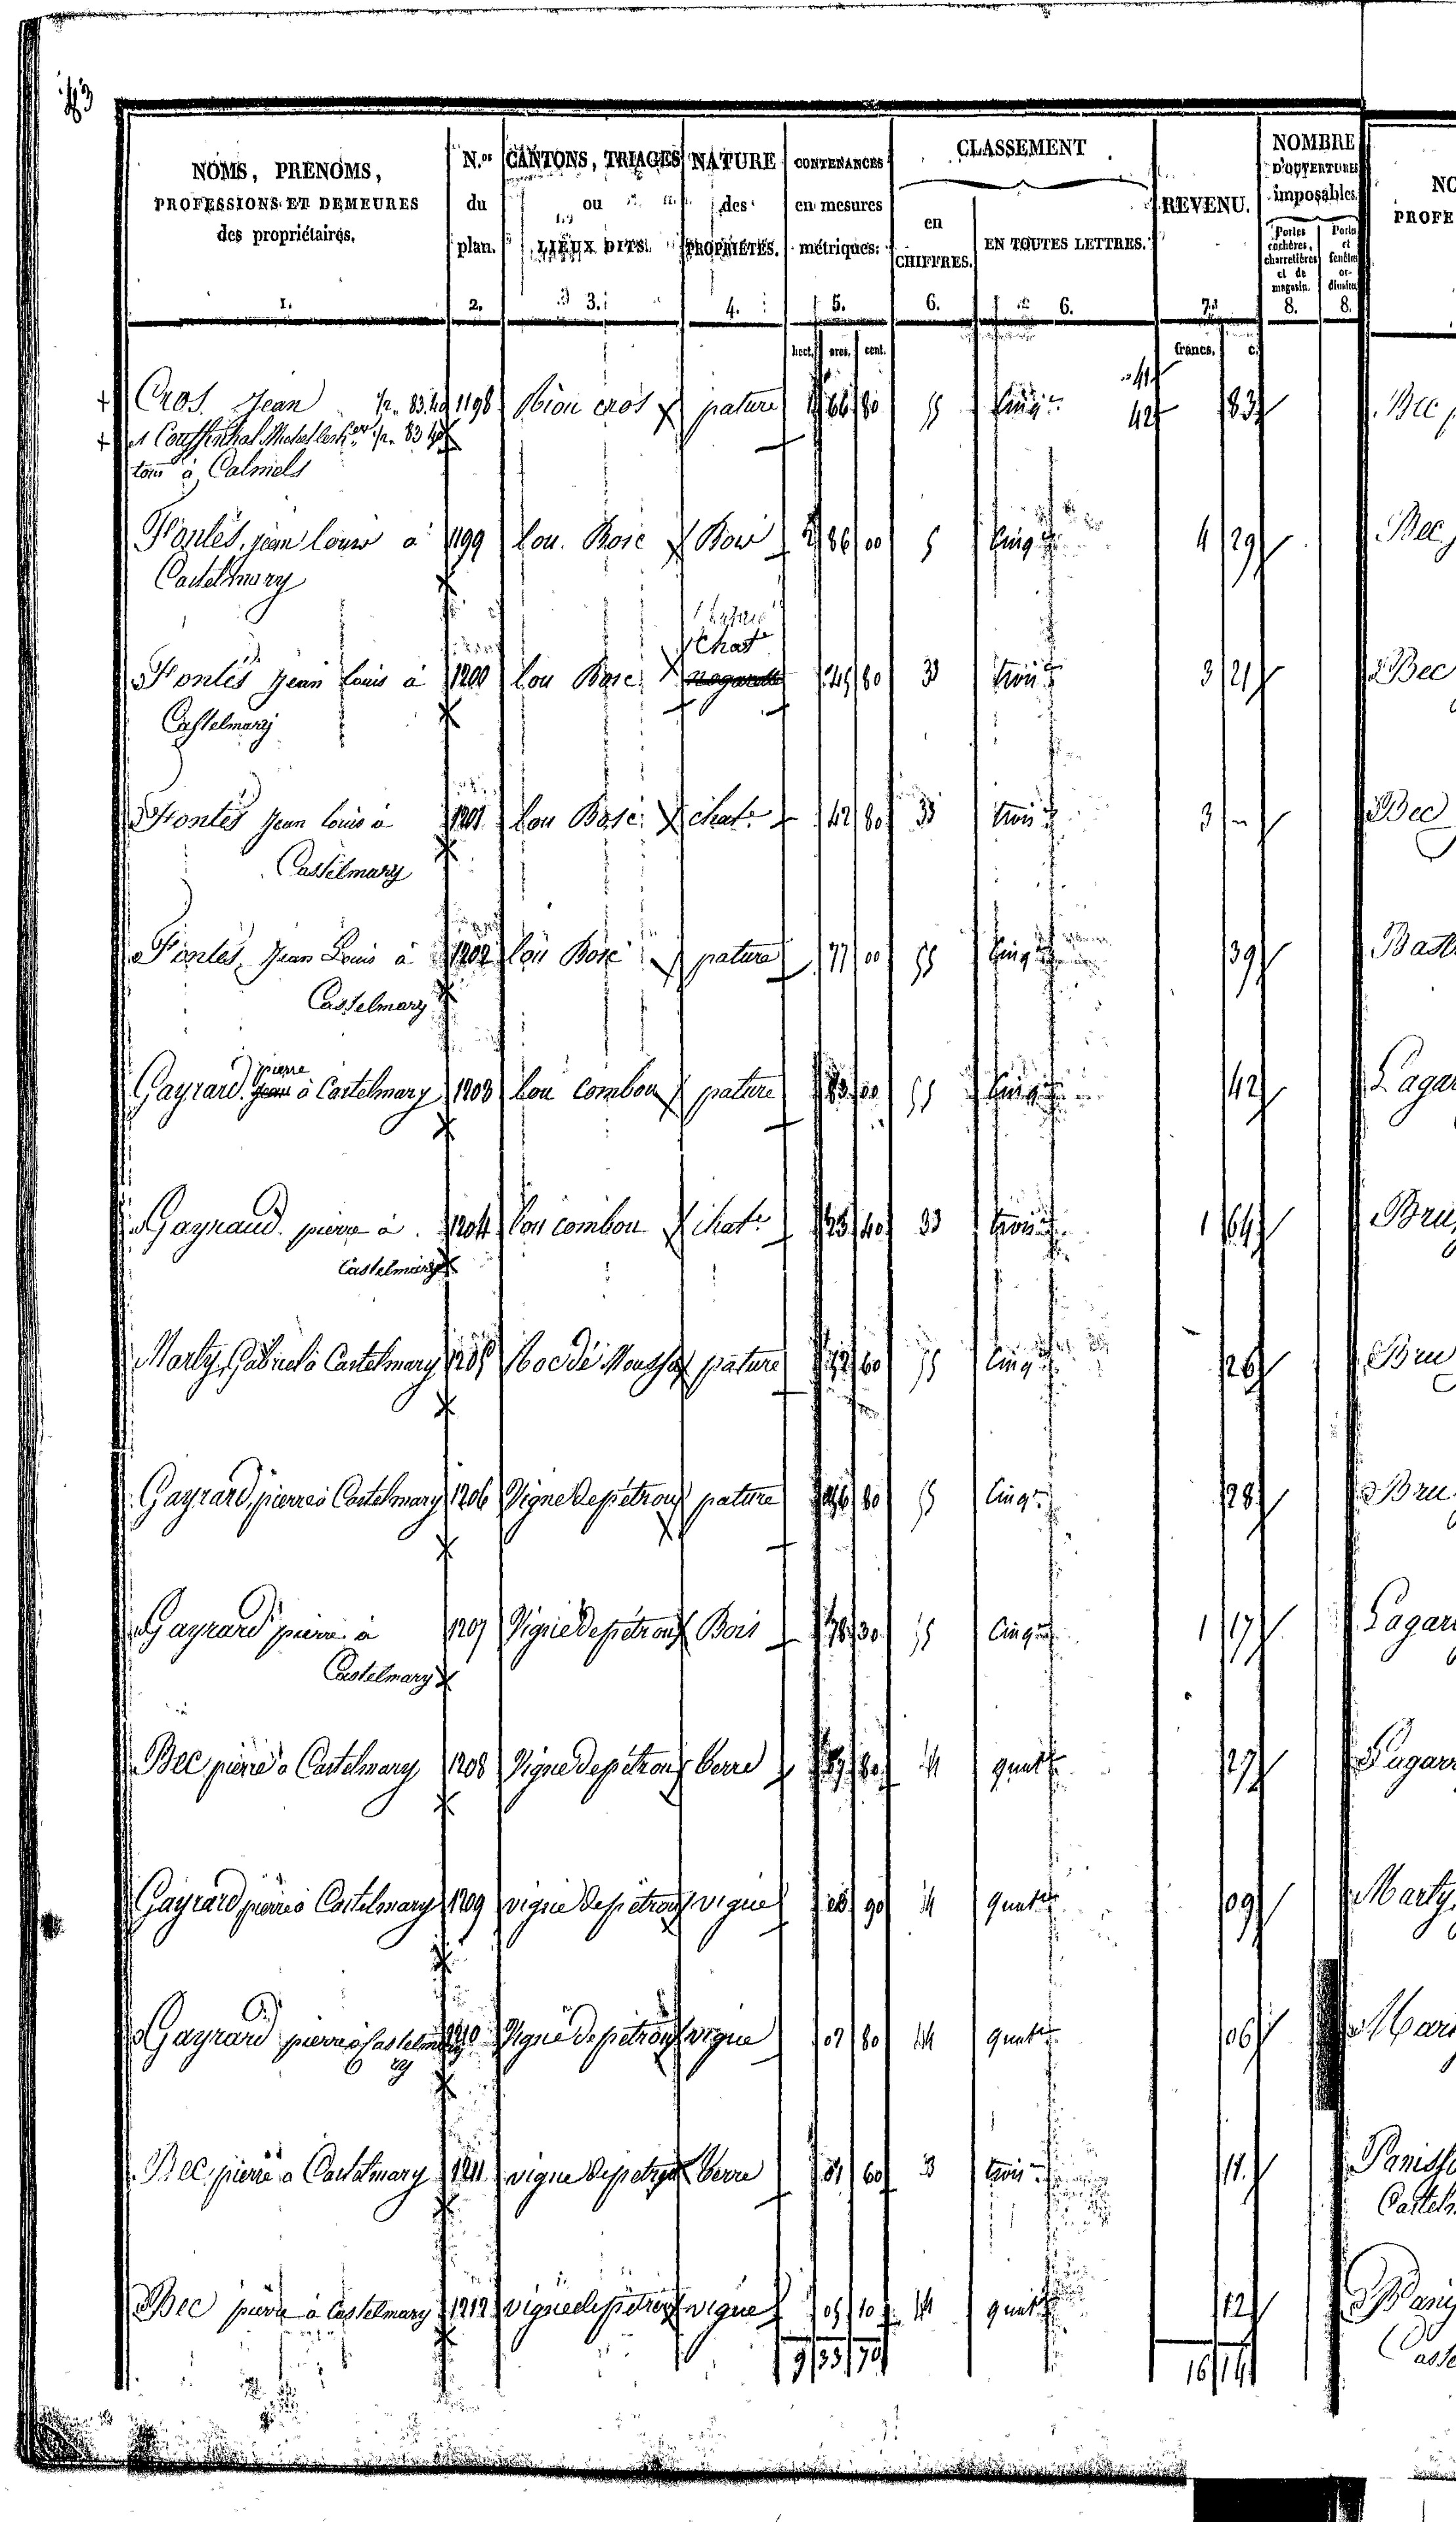 83
NOMS, PRENOMS,
PROFESSIONS ET DEMEURES
des propriétaires.
1.
N.os
du
plan.
2.
CANTONS, TRIAGES
ou
LIEUX DITS.
3.
NATURE
des
PROPRIÉTÉS.
4.
CONTENANCES
en mesures
métriques.
5.
CLASSEMENT
en
CHIFFRES.
6.
EN TOUTES LETTRES.
6.
REVENU.
7.
NOMBRE
D'OUVERTURES
imposables.
Portes
cochères,
charretières
et de
magasin.
8.
Portes
et
fenêtres
or-
dinaires.
8.
hect. ares. cent. francs. c.
41
Cros. Jean 1/2. 83.40 1198 cros pature 1 66 80 5 Cinq.e 42 83
1/2. 83 40
à Calmels
Fontés, jean louis à 1199 lou Bosc Bois 2 86 00 5 Cinq.e 4 29
Castelmary
Chat.e
Fontés jean louis à 1200 lou Bosc 45 80 3 trois.e 3 21
Castelmary
Fontés jean louis à 1201 lou Bosc chat.e 42 80 3 trois.e 3 "
Castelmary
Fontés, Jean Louis à 1202 lou Bosc pature 77 00 5 Cinq.e 39
Castelmary
pierre
Gayrard. Jean à Castelmary 1203 lou combou pature 83 00 5 Cinq.e 42
Gayraud. pierre à 1204 lou combou chat.e 23 40 3 trois.e 1 64
Castelmary
Marty, Gabriel à Castelmary 1205 pature 60 5 Cinq.e 26
Gayrard, pierre à Castelmary 1206 Vigne de pétrou pature 56 80 5 Cinq.e 28
Gayrard pierre à 1207 Vigne de pétrou Bois 78 30 5 Cinq.e 1 17
Castelmary
Bec pierre à Castelmary 1208 Vigne de pétrou terre 80 4 quat.e 27
Gayrard pierre à Castelmary 1209 vigne de pétrou vigne 90 4 quat.e 09
Gayrard pierre à Castelma 1210 Vigne de pétrou vigne 02 80 4 quat.e 06
ry
Bec, pierre à Castelmary 1211 vigne de pétrou terre 01 60 3 trois.e 11
Bec pierre à Castelmary 1212 vigne de pétrou vigne 05 10 4 quat.e 12
9 33 70 16 14
NO
PROFE
Bec
Bec
Bec
Bec
Bast
Lagar
Bru
Bru
Bru
Lagar
Lagar
Marty
Mar
Paniss
Castel
Panis
Caste